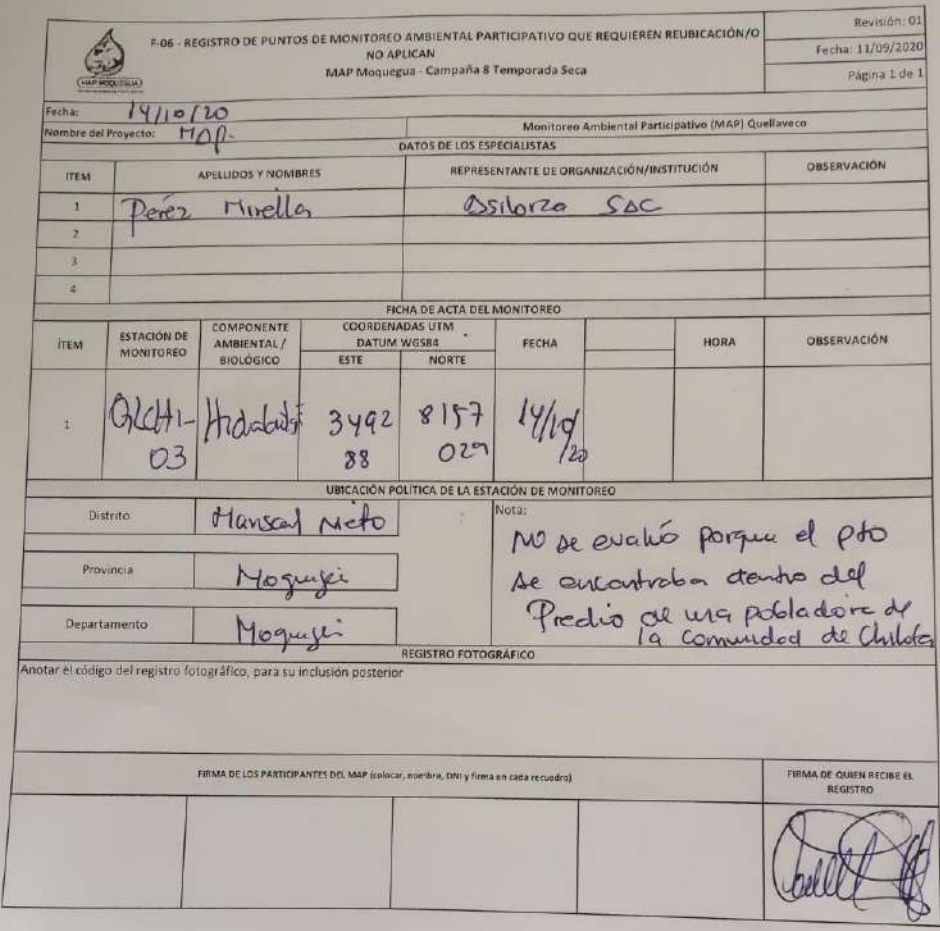 F-06 - REGISTRO DE PUNTOS DE MONITOREO AMBIENTAL PARTICIPATIVO QUE REQUIEREN REUBICACIÓN/O
NO APLICAN
MAP Moquegua - Campaña 8 Temporada Seca
Revisión: 01
Fecha: 11/09/2020
Página 1 de 1
MAP MOQUEGUA
Fecha: 14/10/20
Nombre del Proyecto: MAP.
Monitoreo Ambiental Participativo (MAP) Quellaveco
DATOS DE LOS ESPECIALISTAS
ITEM APELLIDOS Y NOMBRES REPRESENTANTE DE ORGANIZACIÓN/INSTITUCIÓN OBSERVACIÓN
1 Perez Mirella SAC
2
3
4
FICHA DE ACTA DEL MONITOREO
ÍTEM ESTACIÓN DE MONITOREO COMPONENTE AMBIENTAL / BIOLÓGICO COORDENADAS UTM DATUM WGS84 FECHA HORA OBSERVACIÓN
ESTE NORTE
1 3492 8157 14/10
03 88 029 /20
UBICACIÓN POLÍTICA DE LA ESTACIÓN DE MONITOREO
Distrito Mariscal Nieto
Provincia Moquegua
Departamento Moquegua
Nota:
No se evaluó porque el pto
se encontraba dentro del
Predio de una pobladora de
la comunidad de Chilota
REGISTRO FOTOGRÁFICO
Anotar el código del registro fotográfico, para su inclusión posterior
FIRMA DE LOS PARTICIPANTES DEL MAP (colocar, nombre, DNI y firma en cada recuadro)
FIRMA DE QUIEN RECIBE EL
REGISTRO